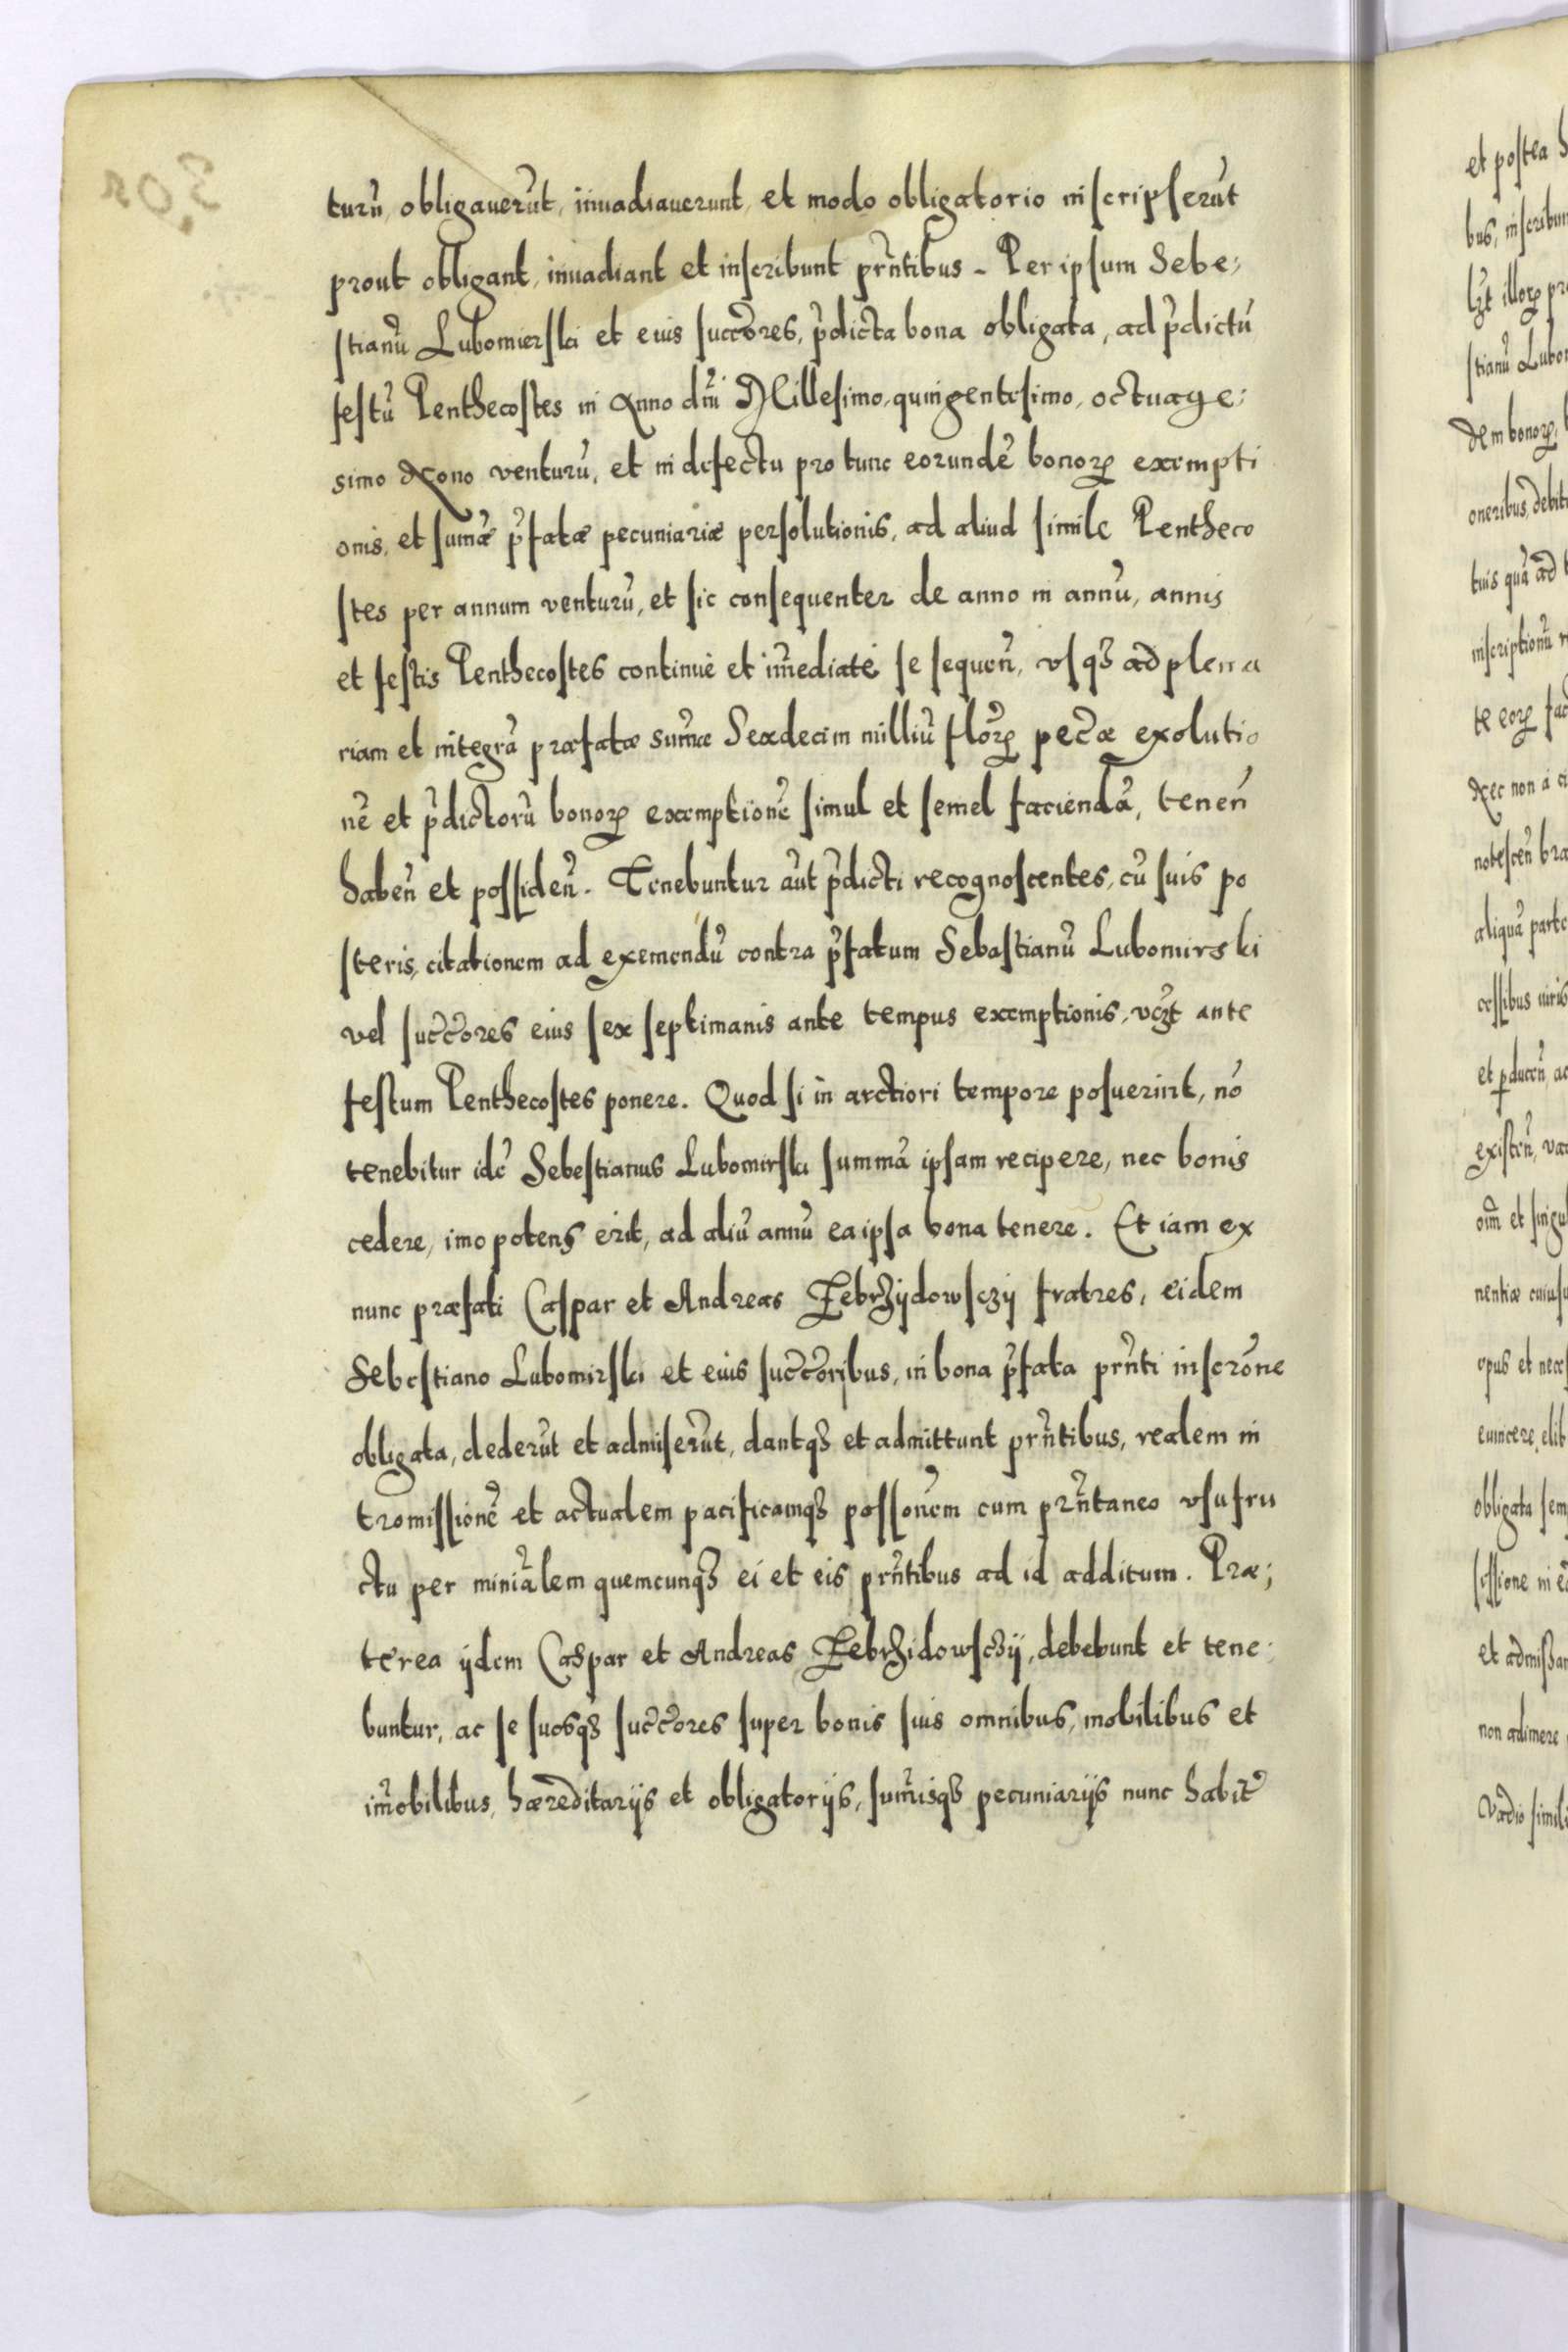 turū, obligauerūt, inuadiauerunt, et modo obligatorio inscripserūt
prout obligant, inuadiant et inscribunt prn̄tibus - Per ipsum Sebe;
stianū Lubomierski et eius succōres, p̄dicta bona obligata, ad p̄dictū
festū Penthecostes in Anno dn̄i Millesimo, quingentesimo, octuage;
simo Nono venturū, et in defectu pro tunc eorundē bonoꝝ exempti
onis, et sum̄æ p̄fatæ pecuniariæ persolutionis, ad aliud simile Pentheco
stes per annum venturū, et sic consequenter de anno in annū, annis
et festis Penthecostes continuè et im̄ediatè se sequen̄, vsqꝫ ad plena
riam et integrā præfatæ sum̄æ Sexdecim milliū florꝝ pec̄æ exolutio
nē et p̄dictorū bonoꝝ exemptionē simul et semel faciendā, tenen̄
haben̄ et possiden̄. Tenebuntur aūt p̄dicti recognoscentes, cū suis po
steris, citationem ad exemendū contra p̄fatum Sebastianū Lubomirski
vel succ̄ores eius sex septimanis ante tempus exemptionis, vꝫt ante
festum Penthecostes ponere. Quod si in arctiori tempore posuerint, nō
tenebitur idē Sebestianus Lubomirski summā ipsam recipere, nec bonis
cedere, imo potens erit, ad aliū annū ea ipsa bona tenere. Et iam ex
nunc præfati Caspar et Andreas Zebrzijdowsczij fratres, eidem
Sebestiano Lubomirski et eius succ̄oribus, in bona p̄fata prn̄ti inscrōne
obligata, dederūt et admiserūt, dantqꝫ et admittunt prn̄tibus, realem in
tromissionē et actualem pacificamqꝫ possōnem cum prn̄taneo vsufru
ctu per miniālem quemcunqꝫ ei et eis prn̄tibus ad id additum. Præ;
terea ijdem Caspar et Andreas Zebrzidowsczij, debebunt et tene;
buntur, ac se suosqꝫ succ̄ores super bonis suis omnibus, mobilibus et
im̄obilibus, hæreditarijs et obligatorijs, sum̄isqꝫ pecuniarijs nunc habit̄
et postea
bus, inscribun
stianū Lubo
dem bonoꝝ,
oneribus, debit
tuis quā ad
inscriptionū
te eorꝝ
Nec non à
notescen̄
aliquā parte
cessibus iuris
et ꝑducen̄
existen̄,
oīm et singu
nentiæ cuius
opus et neces
euincere, elib
obligata sem
sessione in
et admissa
non adimere
Vadio simili